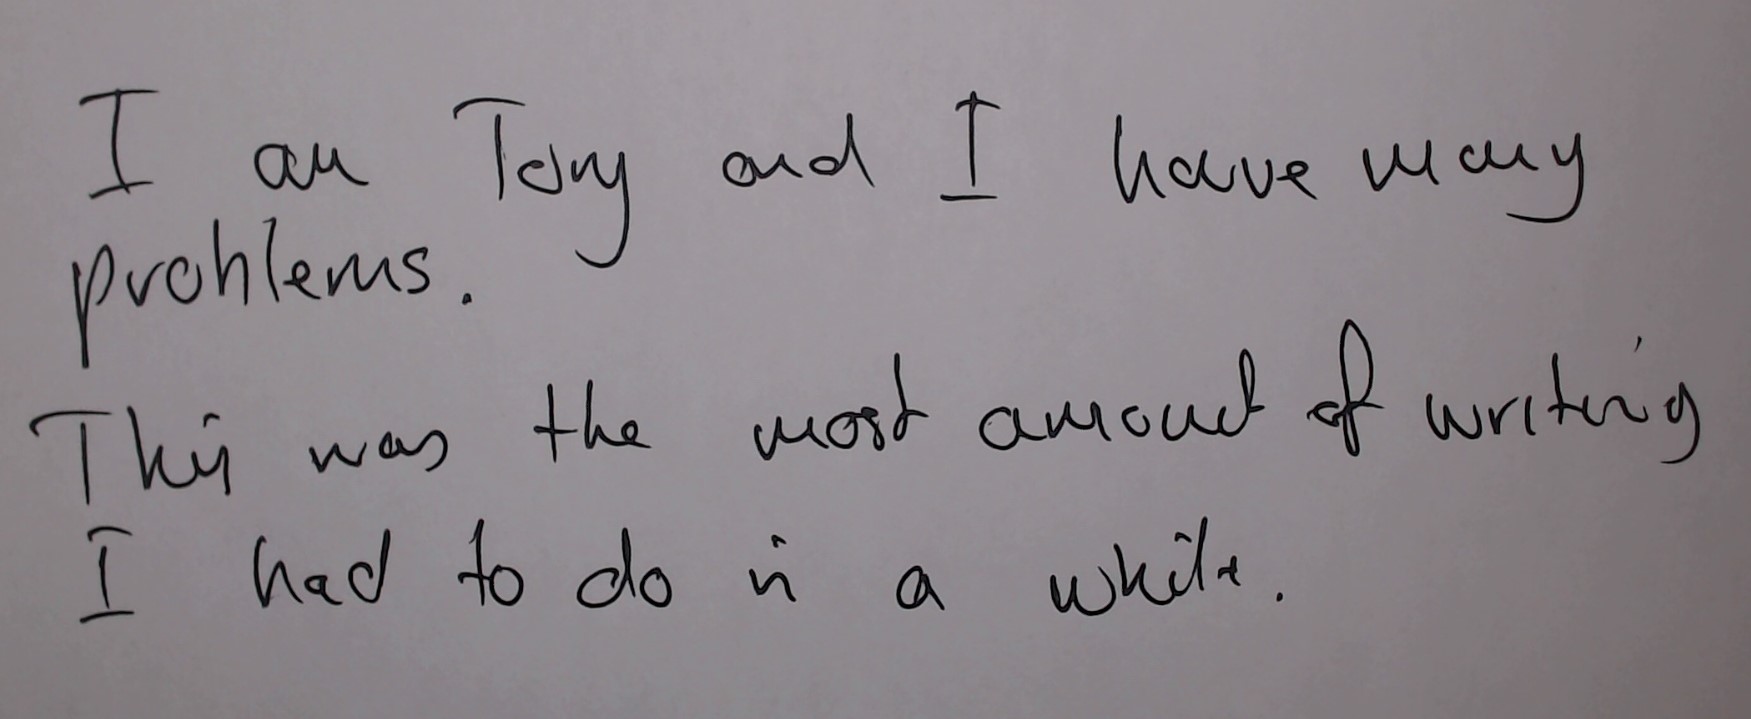 I am Tony and I have many
problems.
This was the most amount of writing
I had to do in a while.